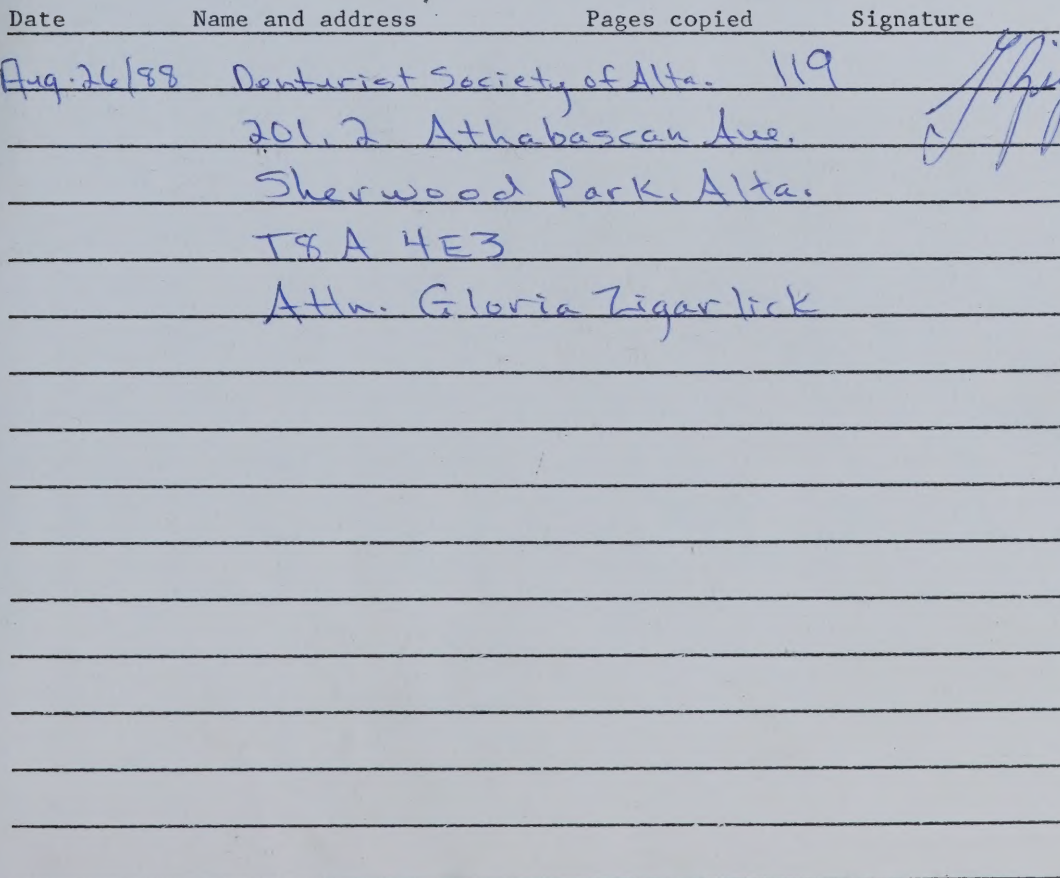 Date Name and address Pages copied Signature
Aug. 26/88 Denturist Society of Alta. 119
201, 2 Athabascan Ave.
Sherwood Park, Alta.
T8A 4E3
Attn. Gloria Zigarlick